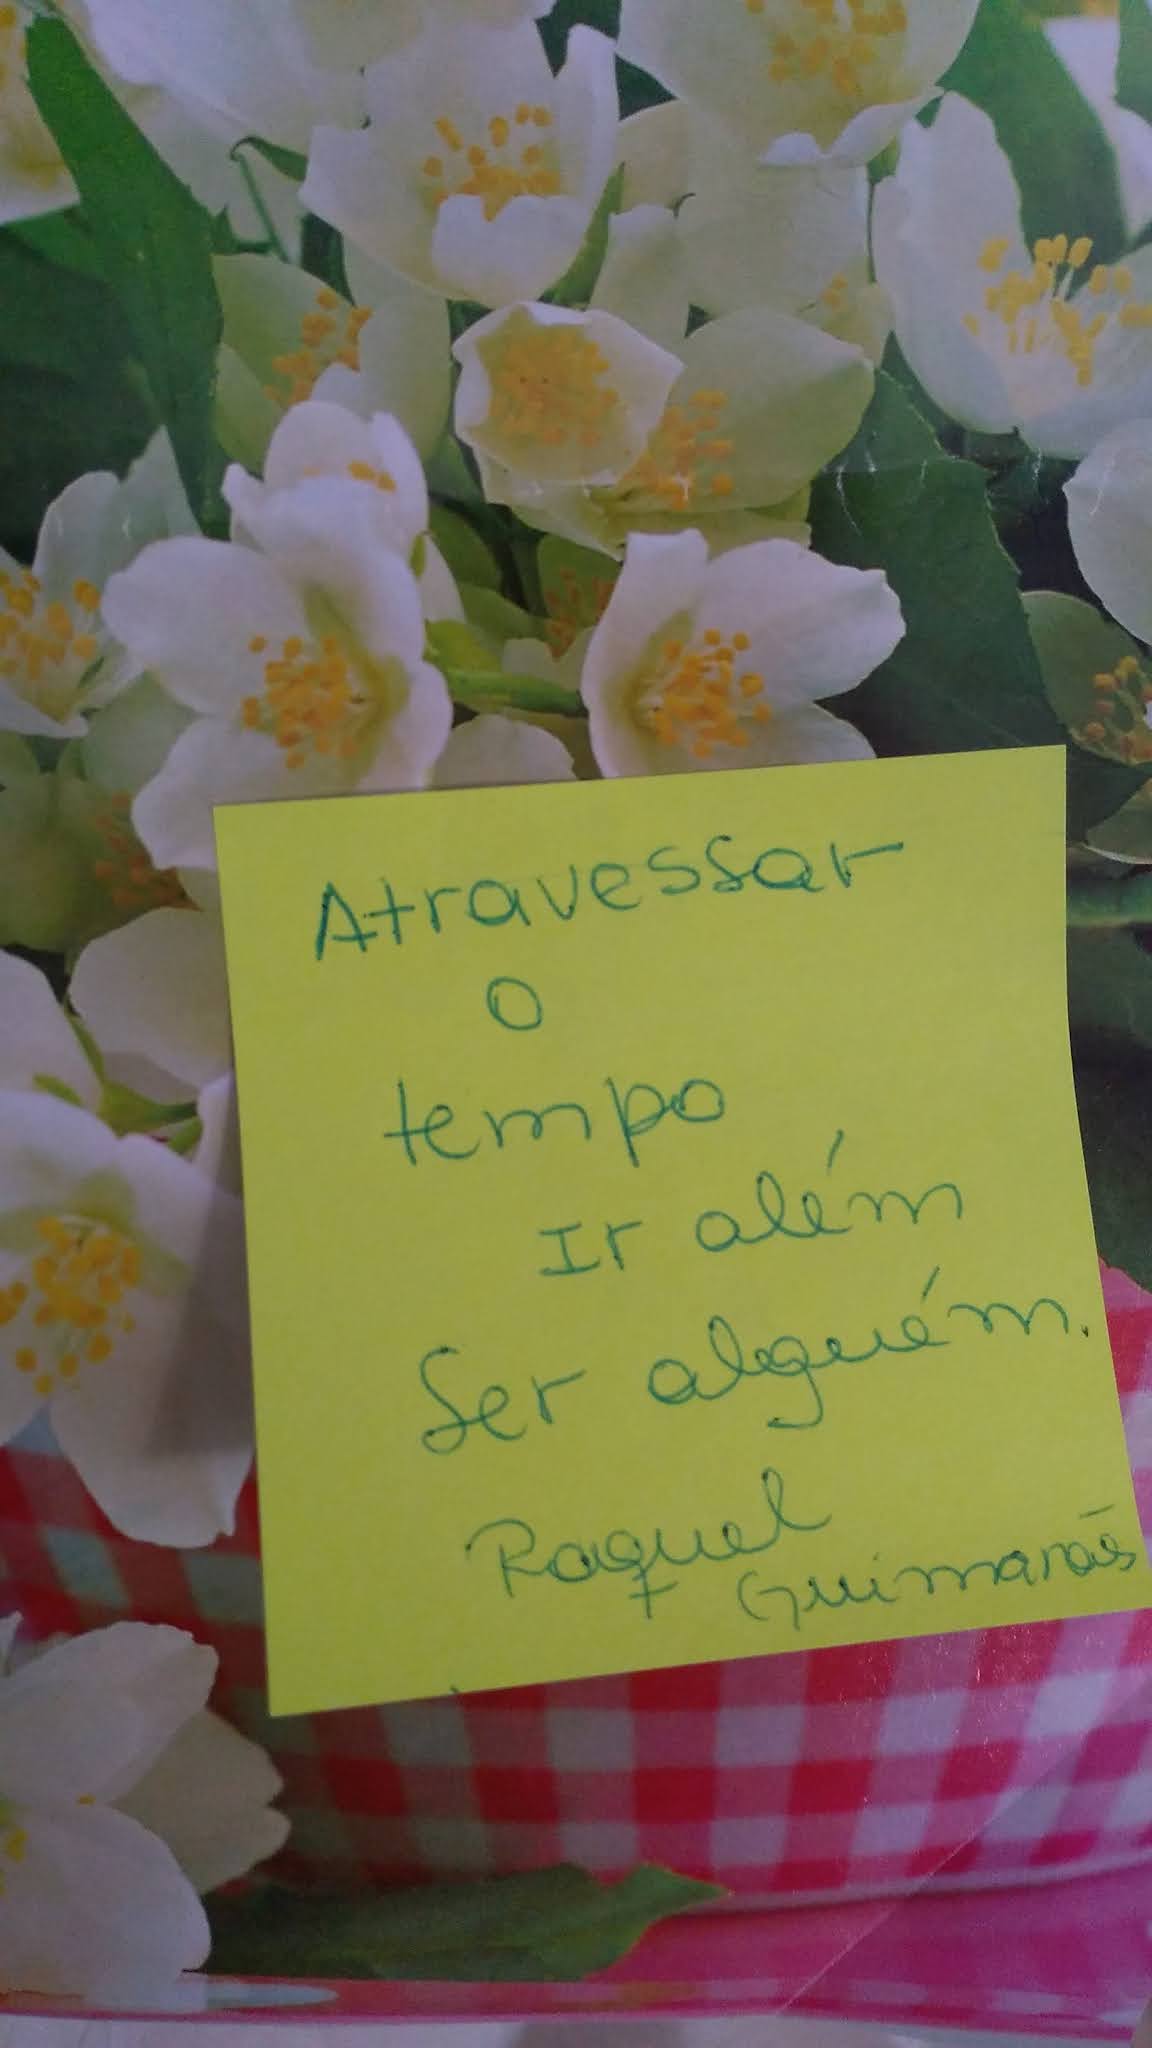 Atravessar
o
tempo
Ir além
Ser alguém.
Raquel
Guimarães